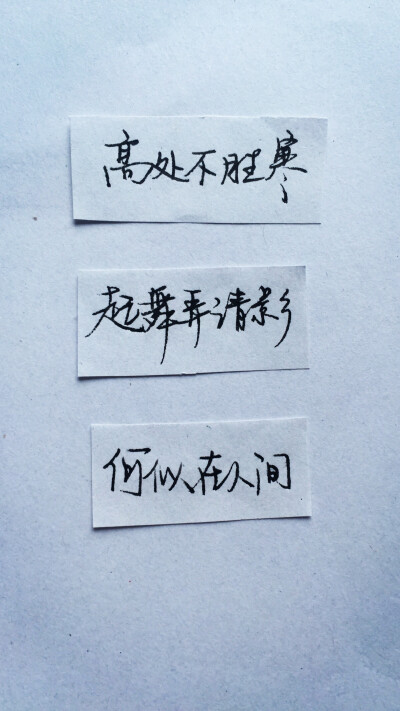 高处不胜寒
起舞弄清影
何似在人间